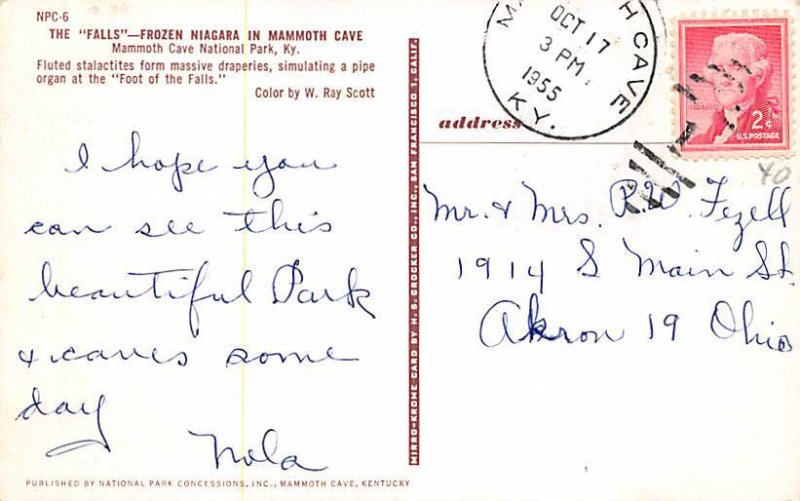 NPC-6
THE "FALLS"—FROZEN NIAGARA IN MAMMOTH CAVE
Mammoth Cave National Park, Ky.
Fluted stalactites form massive draperies, simulating a pipe
organ at the "Foot of the Falls."
Color by W. Ray Scott
I hope you
can see this
beautiful Park
& caves some
day
Nola
PUBLISHED BY NATIONAL PARK CONCESSIONS, INC., MAMMOTH CAVE, KENTUCKY
MIRRO-KROME CARD BY H. S. CROCKER CO., INC., SAN FRANCISCO 1, CALIF.
OCT 17
3 PM
1955
CAVE
KY.
2¢
U.S. POSTAGE
40
address
Mr. & Mrs. R.W. Fezell
1914 S Main St.
Akron 19 Ohio